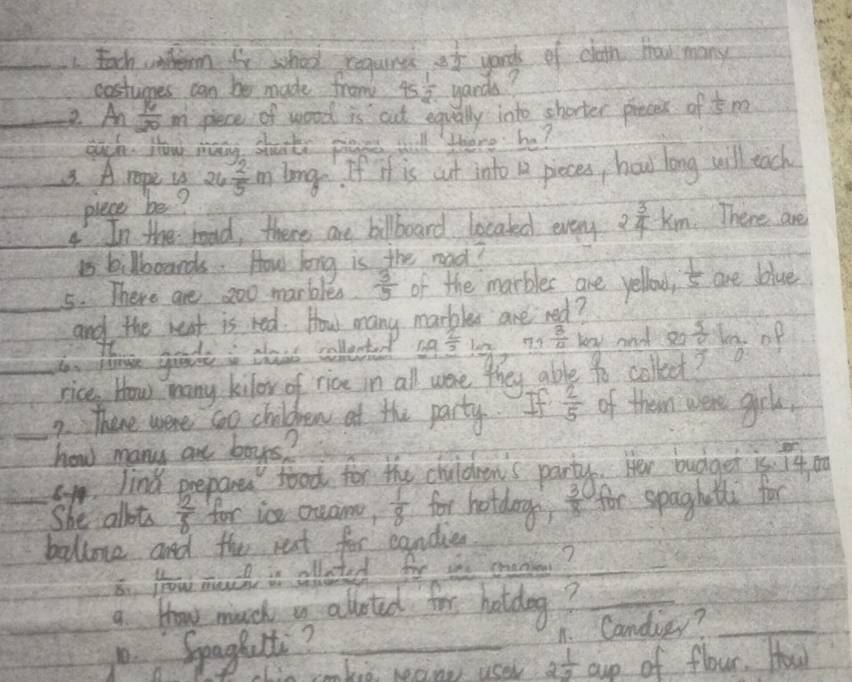 1. Each uniform for school requires 3 1/2 yards of cloth How many
costumes can be made from 45 1/2 yards?
2. An m piece of wood is cut equally into shorter pieces of 1/5 m
each. How many shorter pieces will there be?
3. A rope is 26 2/5 m long. If it is cut into 12 pieces, how long will each
piece be?
4 In the road, there are billboard located every 2 3/4 km. There are
15 billboards. How long is the road?
5. There are 200 marbles. 3/5 of the marbles are yellow, 1/5 are blue
and the rest is red. How many marbles are red?
6. Three grade class collected kg and kg of
rice. How many kilos of rice in all were they able to collect?
7. There were 60 children at the party. If 2/5 of them were girls,
how manys are boys?
Tina prepares food for the children's party. Her budget is
She allots 2/8 for ice cream, 1/8 for hotdog, 3/8 for spaghetti for
and the rest for candies.
8. How much is alloted for ice cream?
9. How much is alloted for hotdog?
10. Spaghetti? 11. Candies?
chip cookie uses 2 1/2 cup of flour. How